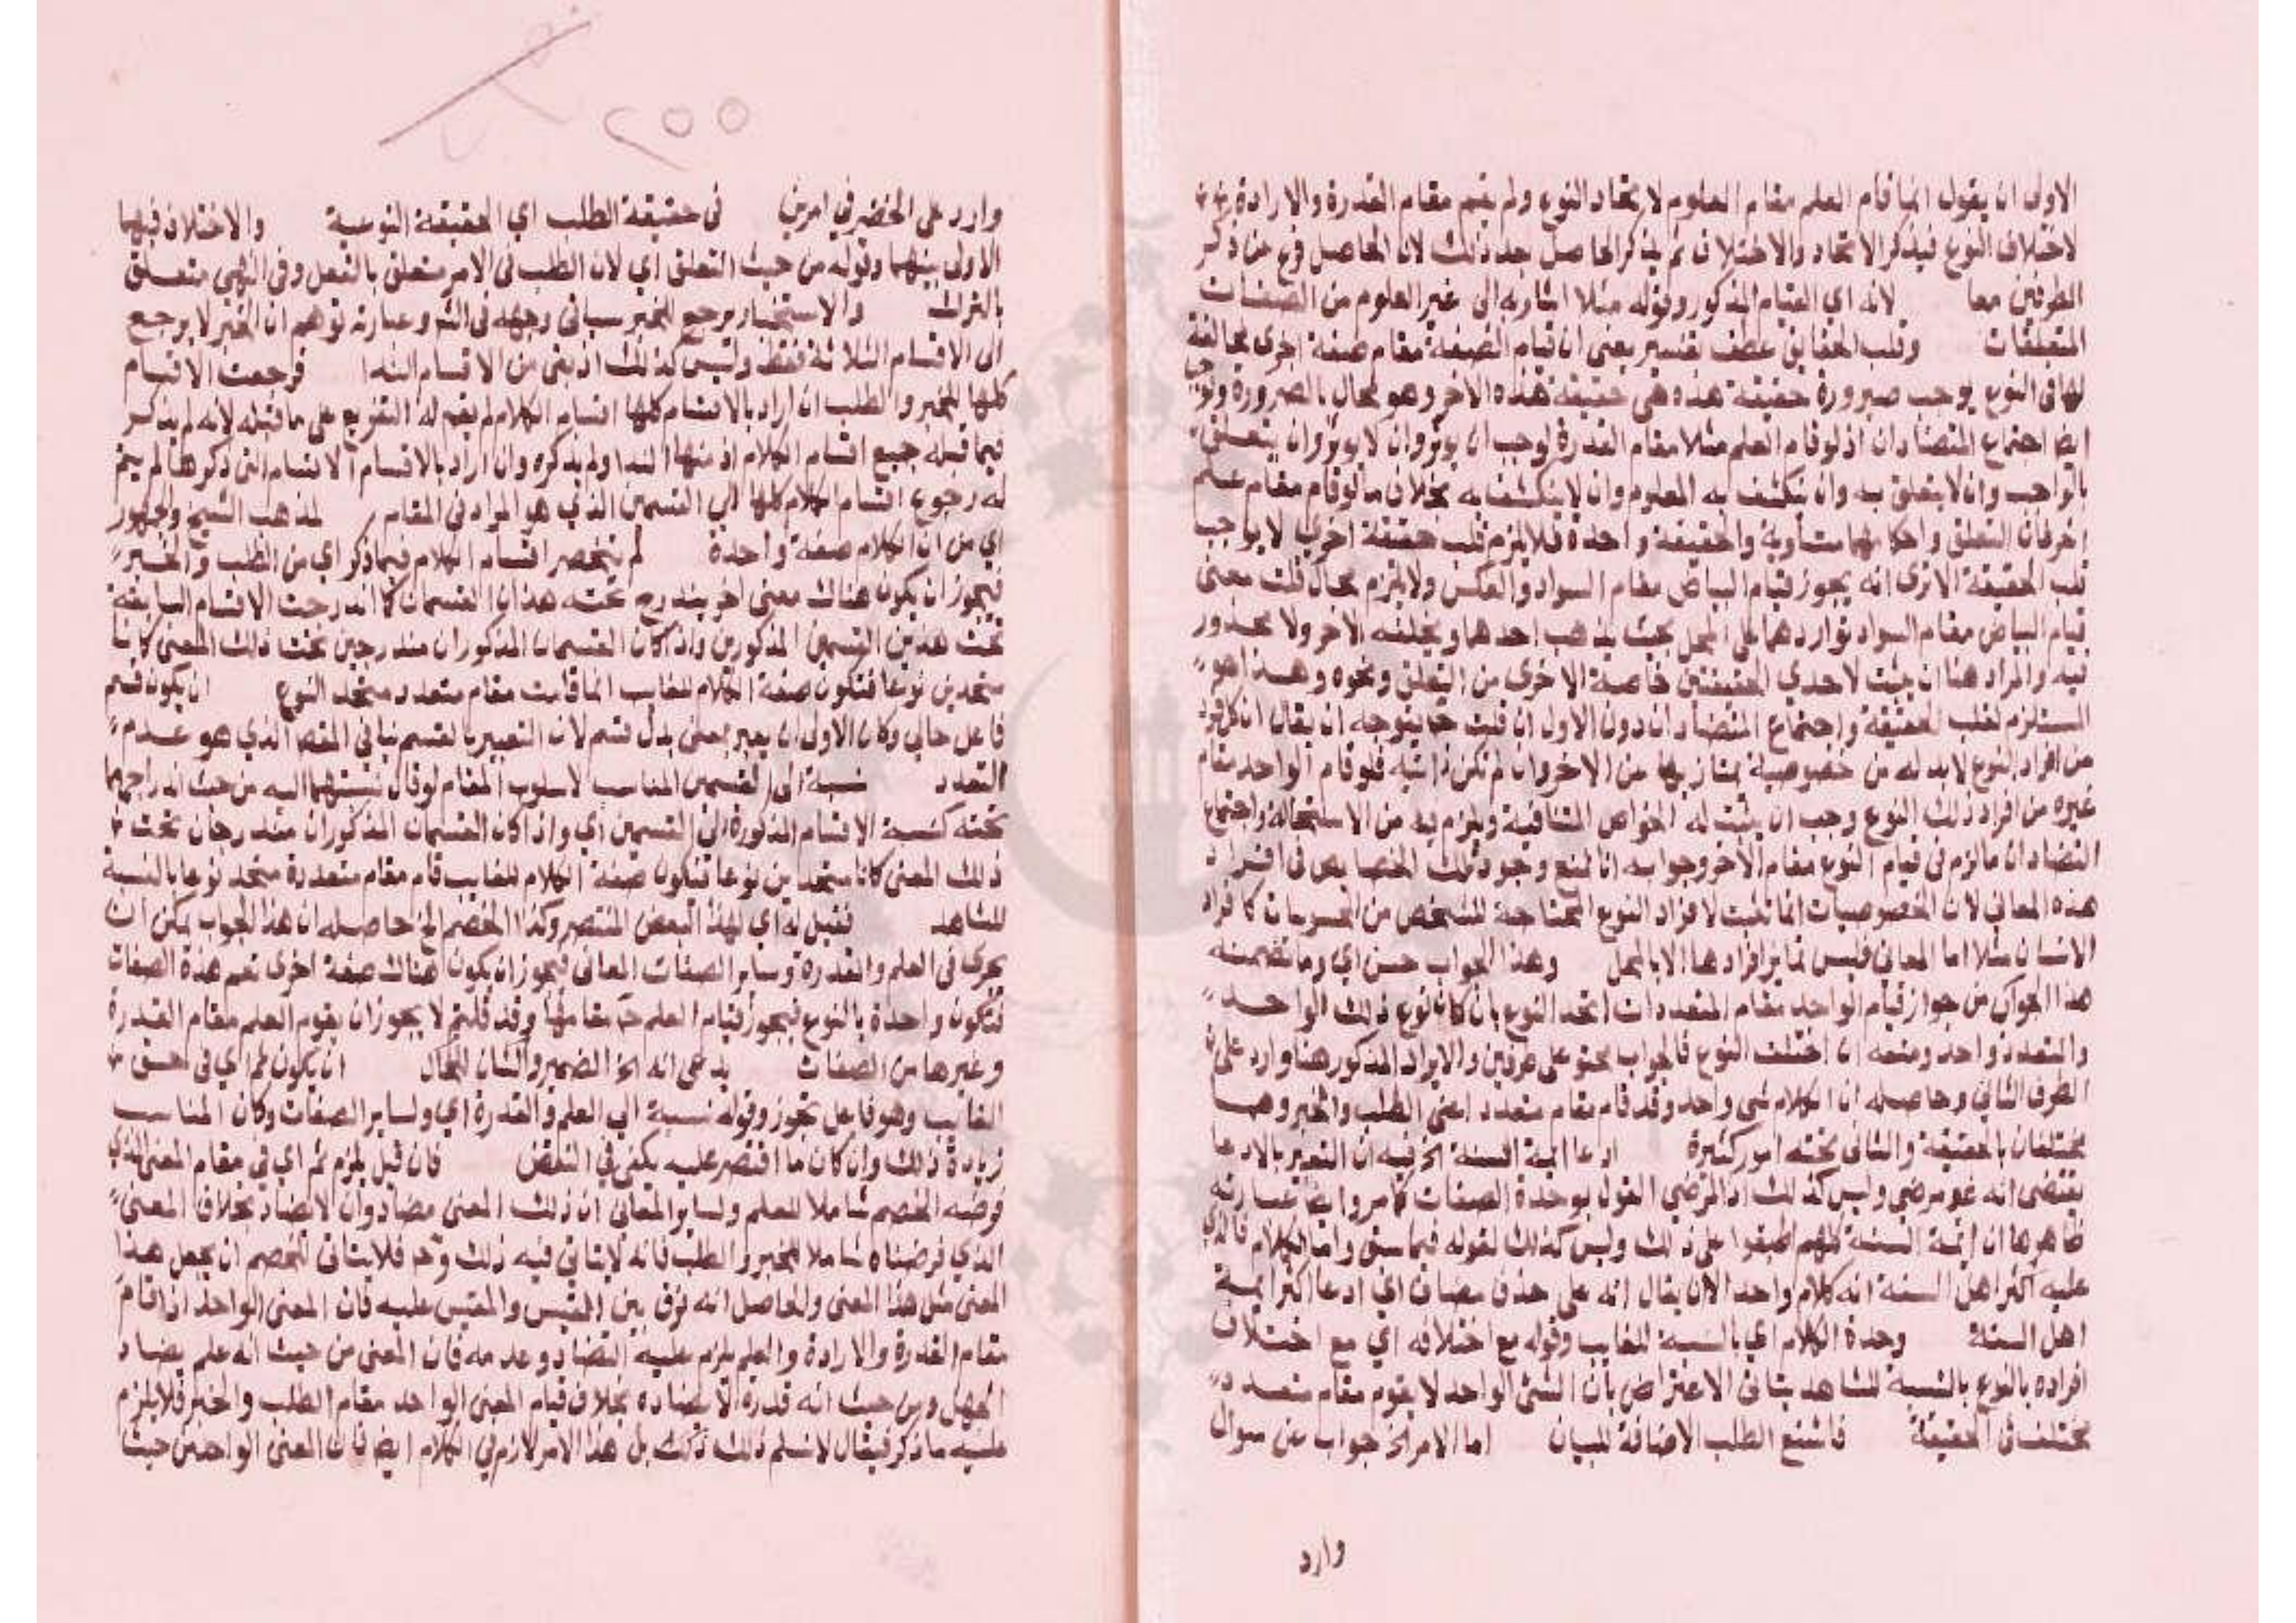 الاولى ان يقول انما قام العلم مقام العلوم لاتحاد النوع ولم يقم مقام القدرة والارادة
لاختلاف النوع فيذكر الاتحاد والاختلاف ثم يذكر الحاصل بعد ذلك لان الحاصل فرع من ذكر
الطرفين معا لانه اي القيام المذكور وقوله مثلا اشار به الى غير العلوم من الصفات
المتعلقات وقلب الحقايق عطف تفسير يعني ان قيام الصفة مقام صفة اخرى مخالفة
لها في النوع يوجب صيرورة حقيقة هذه هي حقيقة هذه الاخر وهو محال بالضرورة
ايضا اجتماع المتضادان اذ لو قام العلم مثلا مقام القدرة لوجب ان يوثر وان لا يوثر وان يتعلق
بالواجب وان لا يتعلق به وان ينكشف به المعلوم وان لا ينكشف به بخلاف ما لو قام مقام علم
اخر فان التعلق واحكامها متساوية والحقيقة واحدة فلا يلزم قلب حقيقة اخرى لا يوجب
قلب الحقيقة الا ترى انه يجوز قيام البياض مقام السواد والعكس ولا يلزم محال قلت معنى
قيام البياض مقام السواد تواردهما على المحل بحيث يذهب احدهما ويخلفه الاخر ولا محذور
فيه والمراد هنا ان يثبت لاحدي الحقيقتين خاصية الاخرى من التعلق ونحوه وهذا هو
المستلزم لقلب الحقيقة واجتماع المتضادان دون الاول ان قلت ح يتوجه ان يقال ان كل فرد
من افراد النوع لا بد له من خصوصية يمتاز بها من الاخر وان لم تكن ذاتية فلو قام الواحد مقام
غيره من افراد ذلك النوع وجب ان يثبت له الخواص المتنافية ويلزم فيه من الاستحالة واجتماع
التضادان ما لزم في قيام النوع مقام الاخر وجوابه انا نمنع وجود تلك الخصايص في افراد
هذه المعاني لان الخصوصيات انما تثبت لافراد النوع المحتاجة للتشخص من المحسوسات كافراد
الانسان مثلا اما المعاني فليس تمايز افرادها الا بالمحل وهذا الجواب حسن اي وما تضمنه
هذا الجواب من جواز قيام الواحد مقام المتعددات اتحد النوع بان كان نوع ذلك الواحد
والمتعدد واحد ومنعه ان اختلف النوع فالجواب محتو على طرفين والايراد المذكور هنا وارد على
الطرف الثاني وحاصله ان الكلام شي واحد وقد قام مقام متعدد اعني الطلب والخبر وهما
مختلفان بالحقيقة والثاني تحته امور كثيرة ادعا ايمة السنة الخ فيه ان التعبير بالادعا
يقتضي انه غير مرضي وليس كذلك اذ المرضي القول بوحدة الصفات كما مر وايضا عبارته
ظاهرها ان ايمة السنة كلهم اطبقوا على ذلك وليس كذلك لقوله فيما سبق واما الكلام فالذي
عليه اكثر اهل السنة انه كلام واحد الا ان يقال انه على حذف مضاف اي ادعا اكثر ايمة
اهل السنة وحدة الكلام اي بالنسبة للغايب وقوله مع اختلافه اي مع اختلاف
افراده بالنوع بالنسبة للشاهد يتاتى الاعتراض بان الشي الواحد لا يقوم مقام متعدد
مختلف في الحقيقة فامتنع الطلب الاضافة للبيان اما الامر الخ جواب عن سوال
وارد
٢٥٥
وارد على الحصر في امرين في حقيقة الطلب اي الحقيقة النوعية والاختلاف فيهما
الاولى بينهما وقوله من حيث التعلق اي لان الطلب في الامر متعلق بالفعل وفي النهي متعلق
بالترك والاستخبار مرجع الخبر سياتي وجهه في الشر وعبارته توهم ان الخبر لا يرجع
الى الاقسام الثلاثة فقط وليس كذلك اذ بقى من الاقسام الندا فرجعت الاقسام
كلها للخبر والطلب ان اراد بالاقسام كلها اقسام الكلام لم يتم له التفريع على ما قبله لانه لم يذكر
فيما قبله جميع اقسام الكلام اذ منها الندا ولم يذكره وان اراد بالاقسام الاقسام التي ذكرها لم يتم
له رجوع اقسام الكلام كلها الى القسمين الذي هو المراد في المقام لمذهب الشيخ والجمهور
اي من ان الكلام صفة واحدة لم تنحصر اقسام الكلام فيما ذكر اي من الطلب والخبر
فيجوز ان يكون هناك معنى اخر يندرج تحته هذان القسمان كما اندرجت الاقسام السابقة
تحت هذين القسمين المذكورين واذا كان القسمان المذكوران مندرجين تحت ذلك المعنى كانا
متحدين نوعا فتكون صفة الكلام للغايب انما قامت مقام متعدد متحد النوع ان يكون قسم
فاعل حالي وكان الاولى ان يعبر بمعنى بدل قسم لان التعبير بالقسم ينافي المقص الذي هو عدم
التعدد نسبة الى القسمين المناسب لاسلوب المقام لو قال نسبتهما اليه من حيث اندراجهما
تحته كنسبة الاقسام المذكورة الى القسمين اي واذا كان القسمان المذكوران مندرجان تحت
ذلك المعنى كانا متحدين نوعا فتكون صفة الكلام للغايب قام مقام متعددة متحد نوعا بالنسبة
للشاهد فقيل له اي لهذا البعض المنتصر وكذا الخصم الخ حاصله ان هذا الجواب يمكن ان
يجري في العلم والقدرة وساير الصفات المعاني فيجوز ان يكون هناك صفة اخرى تعم هذه الصفات
فتكون واحدة بالنوع فيجوز قيام العلم ح مقامها وقد قلتم لا يجوز ان يقوم العلم مقام القدرة
وغيرها من الصفات يدعي انه الخ الضمير والشان للحال ان يكون ثم اي في حق
الغايب وهو فاعل تجوز وقوله نسبة الى العلم والقدرة اي ولساير الصفات وكان المناسب
زيادة ذلك وان كان ما اقتصر عليه يكفي في النقض فان قيل يلزم ثم اي في مقام المعنى الذي
فرضه الخصم شاملا للعلم ولساير المعاني ان ذلك المعنى مضاد وان لا يضاد بخلاف المعنى
الذي فرضناه شاملا للخبر والطلب فانه لا يتاتى فيه ذلك وح فلا يتاتى للخصم ان يجعل هذا
المعنى مثل هذا المعنى والحاصل انه فرق بين المقيس والمقيس عليه فان المعنى الواحد اذا قام
مقام القدرة والارادة والعلم يلزم عليه التضاد وعدمه فان المعنى من حيث انه علم يضاد
الجهل ومن حيث انه قدرة لا يضاده بخلاف قيام المعنى الواحد مقام الطلب والخبر فلا يلزم
عليه ما ذكر فيقال لا نسلم ذلك بل هذا الامر لازم في الكلام ايضا فان المعنى الواحد من حيث